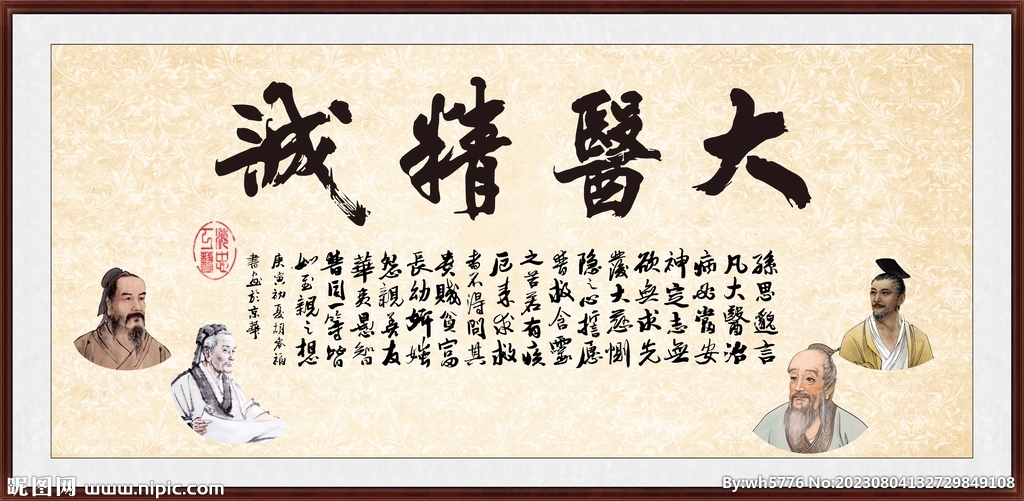 大醫精誠
孫思邈言
凡大醫治
病必當安
神定志無
欲無求先
發大慈惻
隱之心誓愿
普救含靈
之苦若有疾
厄来求救
者不得問其
貴賤貧富
長幼妍媸
怨親善友
華夷愚智
普同一等皆
如至親之想
庚寅初夏胡福
書畫於京華
昵图网 www.nipic.com
By:wh5776 No:20230804132729849108